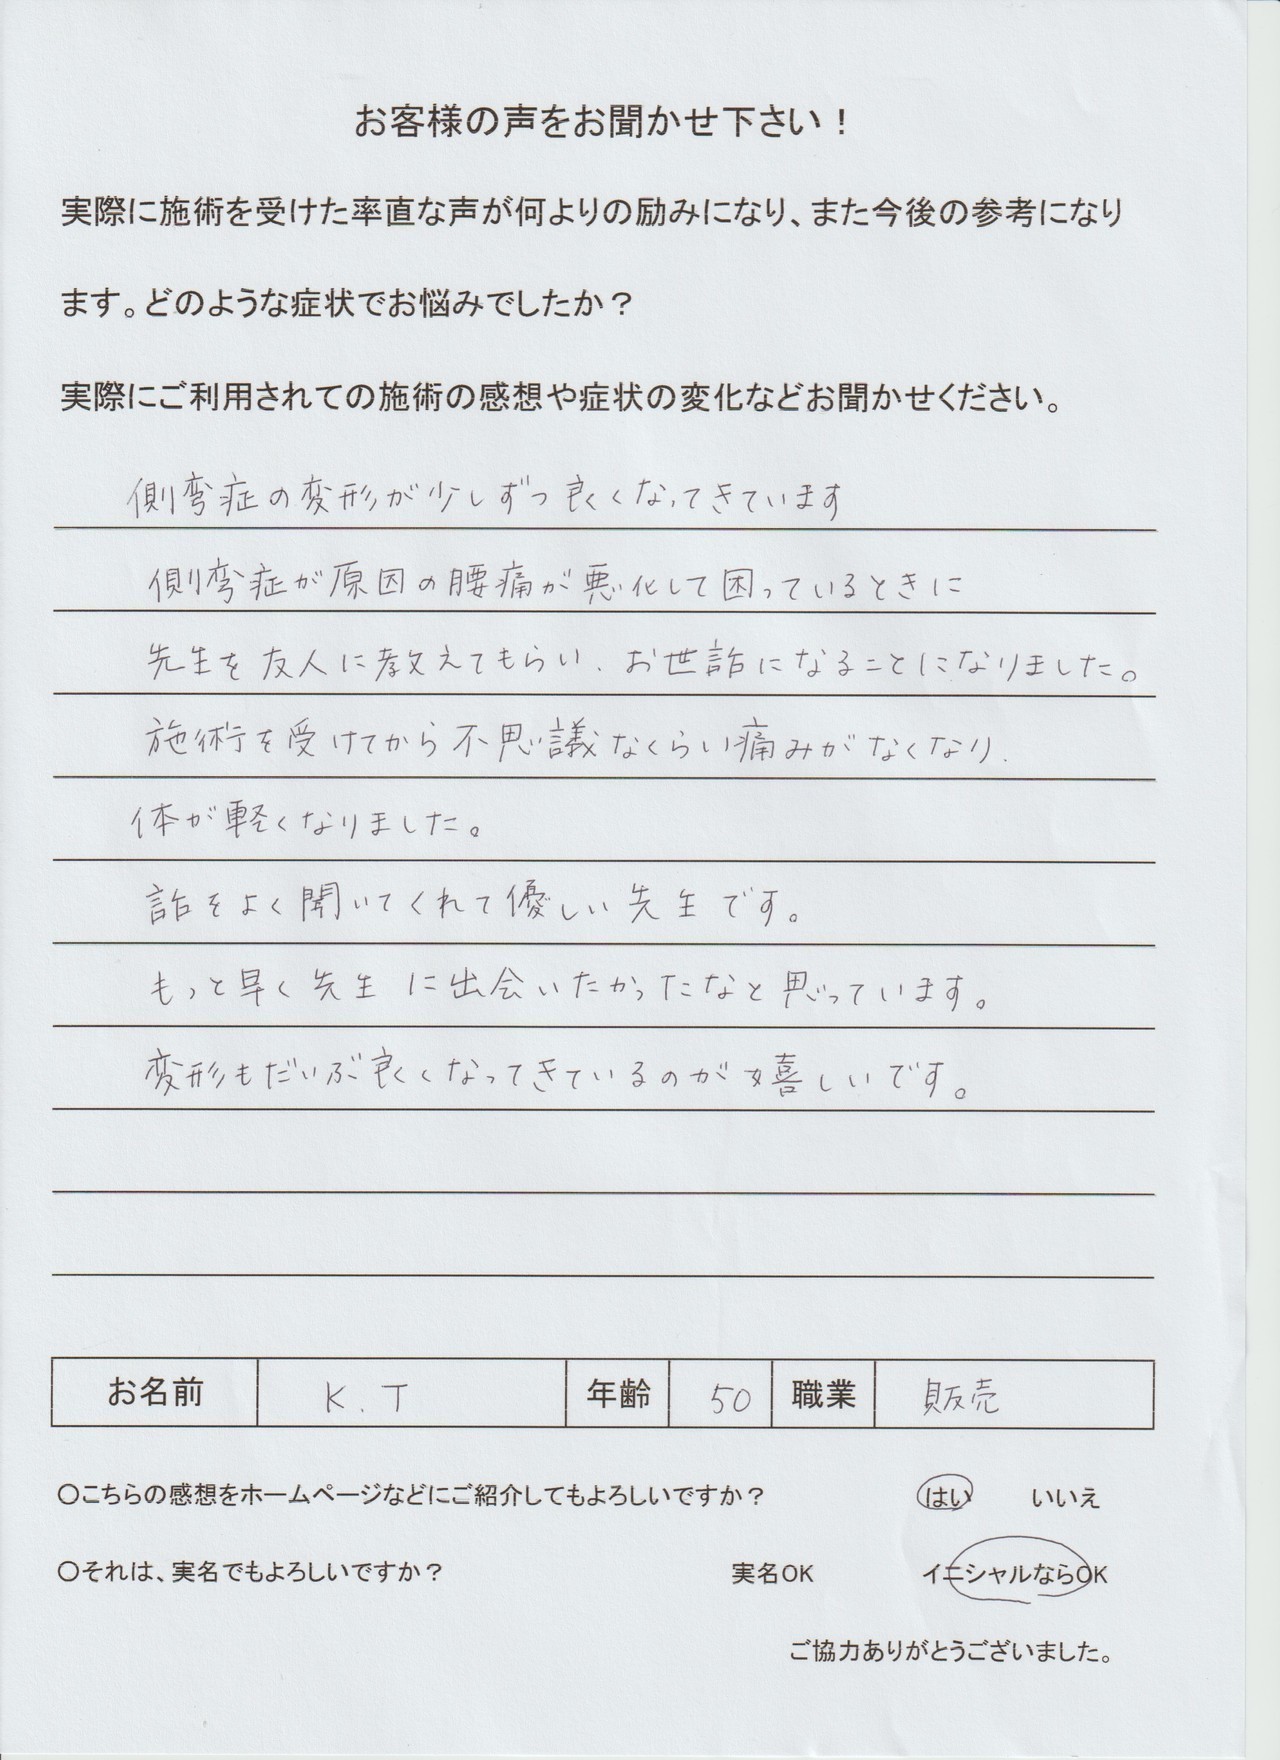 お客様の声をお聞かせ下さい！
実際に施術を受けた率直な声が何よりの励みになり、また今後の参考になり
ます。どのような症状でお悩みでしたか？
実際にご利用されての施術の感想や症状の変化などお聞かせください。
側弯症の変形が少しずつ良くなってきています
側弯症が原因の腰痛が悪化して困っているときに
先生を友人に教えてもらい、お世話になることになりました。
施術を受けてから不思議なくらい痛みがなくなり、
体が軽くなりました。
話をよく聞いてくれて優しい先生です。
もっと早く先生に出会いたかったなと思っています。
変形もだいぶ良くなってきているのが嬉しいです。
お名前 K.T 年齢 50 職業 販売
〇こちらの感想をホームページなどにご紹介してもよろしいですか？ はい いいえ
〇それは、実名でもよろしいですか？ 実名OK イニシャルならOK
ご協力ありがとうございました。